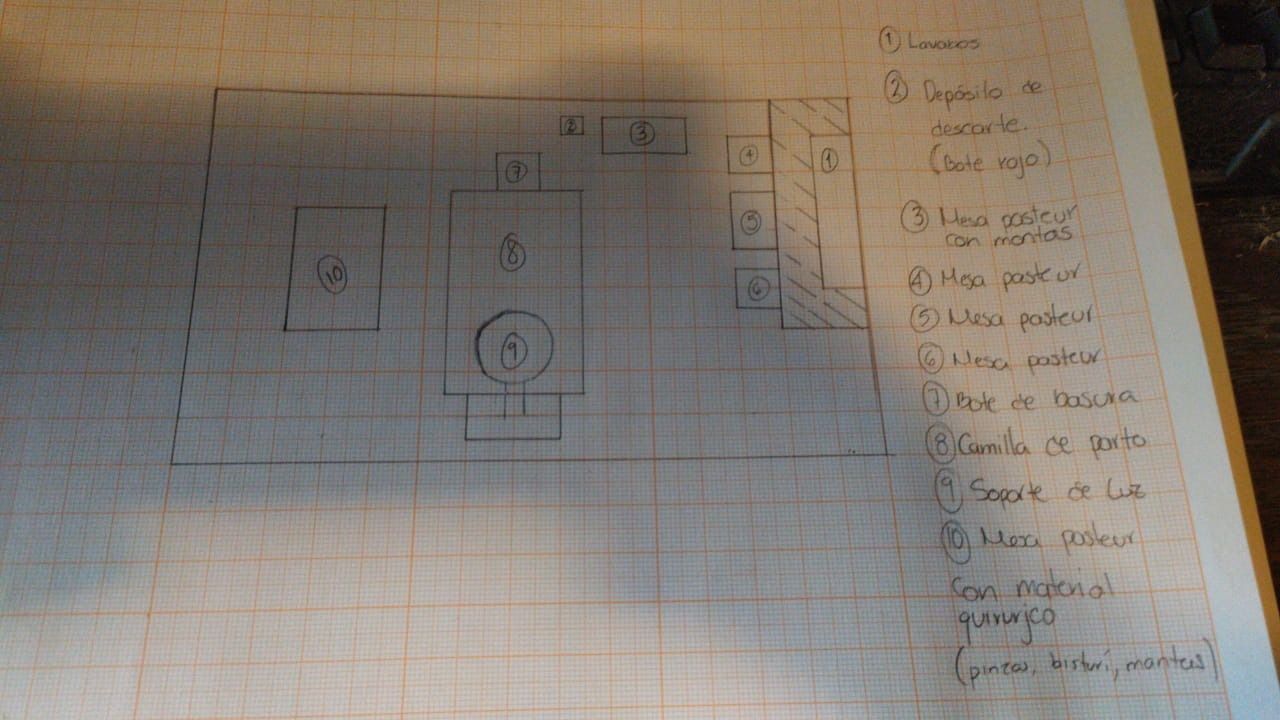 ② ③ ④ ①
⑦
⑧ ⑤
⑩ ⑥
⑨
① Lavabos
② Depósito de
descarte.
(Bote rojo)
③ Mesa pasteur
con mantas
④ Mesa pasteur
⑤ Mesa pasteur
⑥ Mesa pasteur
⑦ Bote de basura
⑧ Camilla de parto
⑨ Soporte de luz
⑩ Mesa pasteur
con material
quirurjco
(pinzas, bisturí, mantas)